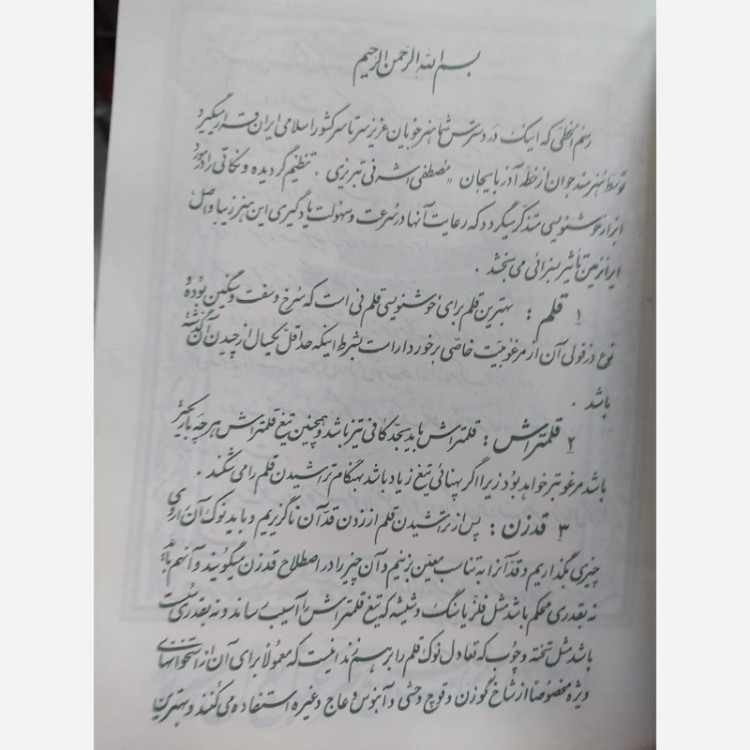 بسم الله الرحمن الرحیم
رسم الخطی که اینک در دسترس شما هنرجویان عزیز سرتاسر کشور اسلامی ایران قرار میگیرد
توسط هنرمند جوان از خطه آذربایجان «مصطفی اشرفی تبریزی» تنظیم گردیده و نکاتی را در مورد
ابزار خوشنویسی متذکر میگردد که رعایت آنها در سرعت و سهولت یادگیری این هنر زیبا و اصیل
ایران زمین تأثیر بسزائی می بخشد .
۱ قلم : بهترین قلم برای خوشنویسی قلم نی است که سرخ و سفت و سنگین بوده و
نوع دزفولی آن از مرغوبیت خاصی برخوردار است بشرط اینکه حداقل یکسال از چیدن آن گذشته
باشد .
۲ قلمتراش : قلمتراش باید بحد کافی تیز باشد و همچنین تیغ قلمتراش هر چه باریکتر
باشد مرغوبتر خواهد بود زیرا اگر پهنائی تیغ زیاد باشد بهنگام تراشیدن قلم را می شکند .
۳ قدزن : پس از تراشیدن قلم از زدن قد آن ناگزیریم و باید نوک آن را روی
چیزی بگذاریم و قد آنرا به تناسب معین بزنیم و آن چیز را در اصطلاح قدزن میگویند و آنهم باید
نه بقدری محکم باشد مثل فلز یا سنگ و شیشه که تیغ قلمتراش را آسیب رساند و نه بقدری سست
باشد مثل تخته و چوب که تعادل نوک قلم را برهم زند اینست که معمولاً برای آن از استخوانهای
ویژه مخصوصاً از شاخ گوزن و قوچ وحشی و آبنوس و عاج و غیره استفاده می کنند و بهترین